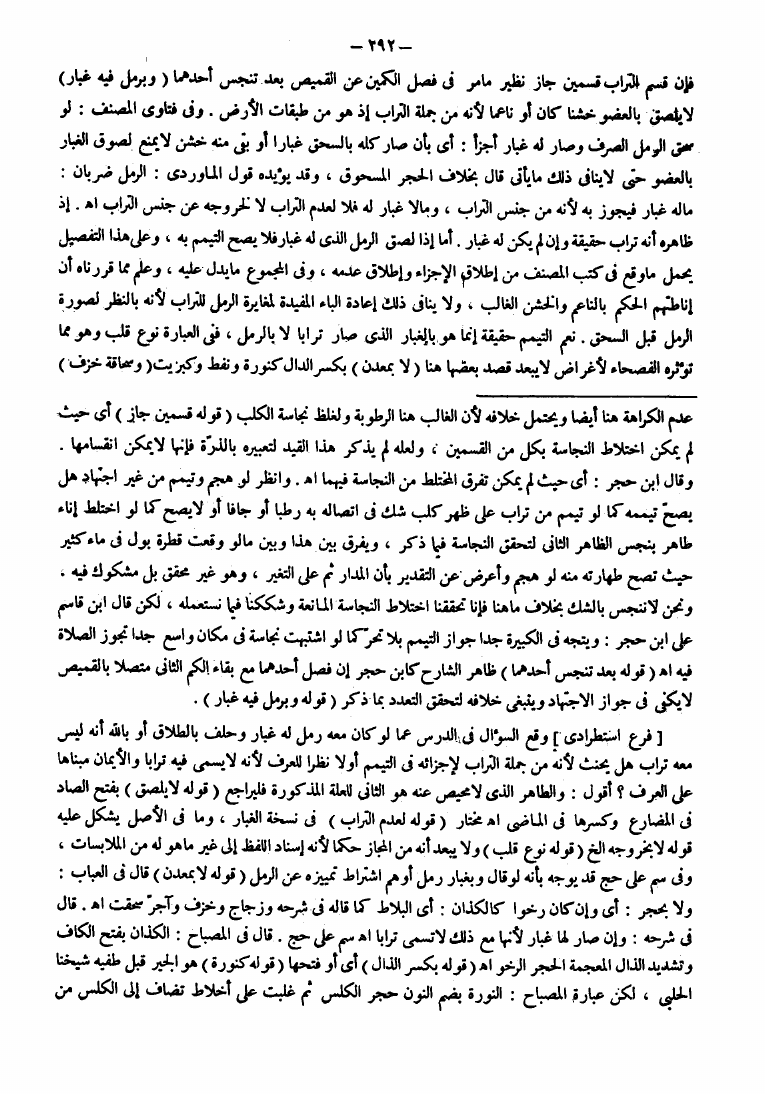 — ٢٩٢ —
فإن قسم التراب قسمين جاز نظير مامر فى فصل الكمين عن القميص بعد تنجس أحدهما ( وبرمل فيه غبار)
لايلصق بالعضو خشنا كان أو ناعما لأنه من جملة التراب إذ هو من طبقات الأرض . وفى فتاوى المصنف : لو
سحق الرمل الصرف وصار له غبار أجزأ : أى بأن صار كله بالسحق غبارا أو بقى منه خشن لايمنع لصوق الغبار
بالعضو حتى لاينافى ذلك مايأتى قال بخلاف الحجر المسحوق ، وقد يؤيده قول الماوردى : الرمل ضربان :
ماله غبار فيجوز به لأنه من جنس التراب ، ومالا غبار له فلا لعدم التراب لا لخروجه عن جنس التراب اه . إذ
ظاهره أنه تراب حقيقة وإن لم يكن له غبار . أما إذا لصق الرمل الذى له غبار فلا يصح التيمم به ، وعلى هذا التفصيل
يحمل ماوقع فى كتب المصنف من إطلاق الإجزاء وإطلاق عدمه ، وفى المجموع مايدل عليه ، وعلم مما قررناه أن
إناطتهم الحكم بالناعم والخشن الغالب ، ولا ينافى ذلك إعادة الباء المفيدة لمغايرة الرمل للتراب لأنه بالنظر لصورة
الرمل قبل السحق . نعم التيمم حقيقة إنما هو بالغبار الذى صار ترابا لا بالرمل ، ففى العبارة نوع قلب وهو مما
تؤثره الفصحاء لأغراض لايبعد قصد بعضها هنا ( لا بمعدن ) بكسر الدال كنورة ونفط وكبريت ( وسحاقة خزف )
عدم الكراهة هنا أيضا ويحتمل خلافه لأن الغالب هنا الرطوبة ولغلظ نجاسة الكلب ( قوله قسمين جاز ) أى حيث
لم يمكن اختلاط النجاسة بكل من القسمين ، ولعله لم يذكر هذا القيد لتعبيره بالذرّة فإنها لايمكن انقسامها .
وقال ابن حجر : أى حيث لم يمكن تفرق المختلط من النجاسة فيهما اه . وانظر لو هجم وتيمم من غير اجتهاد هل
يصحّ تيممه كما لو تيمم من تراب على ظهر كلب شك فى اتصاله به رطبا أو جافا أو لايصح كما لو اختلط إناء
طاهر بنجس الظاهر الثانى لتحقق النجاسة فيما ذكر ، ويفرق بين هذا وبين مالو وقعت قطرة بول فى ماء كثير
حيث تصح طهارته منه لو هجم وأعرض عن التقدير بأن المدار ثم على التغير ، وهو غير محقق بل مشكوك فيه .
ونحن لاننجس بالشك بخلاف ماهنا فإنا تحققنا اختلاط النجاسة المانعة وشككنا فيما نستعمله ، لكن قال ابن قاسم
على ابن حجر : ويتجه فى الكبيرة جدا جواز التيمم بلا تحرّ كما لو اشتبهت نجاسة فى مكان واسع جدا تجوز الصلاة
فيه اه ( قوله بعد تنجس أحدهما ) ظاهر الشارح كابن حجر إن فصل أحدهما مع بقاء الكم الثانى متصلا بالقميص
لايكفى فى جواز الاجتهاد وينبغى خلافه لتحقق التعدد بما ذكر ( قوله وبرمل فيه غبار ) .
[ فرع استطرادى ] وقع السؤال فى الدرس عما لو كان معه رمل له غبار وحلف بالطلاق أو بالله أنه ليس
معه تراب هل يحنث لأنه من جملة التراب لإجزائه فى التيمم أولا نظرا للعرف لأنه لايسمى فيه ترابا والأيمان مبناها
على العرف ؟ أقول : والظاهر الذى لامحيص عنه هو الثانى للعلة المذكورة فليراجع ( قوله لايلصق ) بفتح الصاد
فى المضارع وكسرها فى الماضى اه مختار ( قوله لعدم التراب ) فى نسخة الغبار ، وما فى الأصل يشكل عليه
قوله لا لخروجه الخ ( قوله نوع قلب ) ولا يبعد أنه من المجاز حكما لأنه إسناد اللفظ إلى غير ماهو له من الملابسات ،
وفى سم على حج قد يوجه بأنه لو قال وبغبار رمل أوهم اشتراط تمييزه عن الرمل ( قوله لابمعدن ) قال فى العباب :
ولا بحجر : أى وإن كان رخوا كالكذان : أى البلاط كما قاله فى شرحه وزجاج وخزف وآجرّ سحقت اه . قال
فى شرحه : وإن صار لها غبار لأنها مع ذلك لاتسمى ترابا اه سم على حج . قال فى المصباح : الكذان بفتح الكاف
وتشديد الذال المعجمة الحجر الرخو اه ( قوله بكسر الدال ) أى أو فتحها ( قوله كنورة ) هو الجير قبل طفيه شيخنا
الحلبى ، لكن عبارة المصباح : النورة بضم النون حجر الكلس ثم غلبت على أخلاط تضاف إلى الكلس من